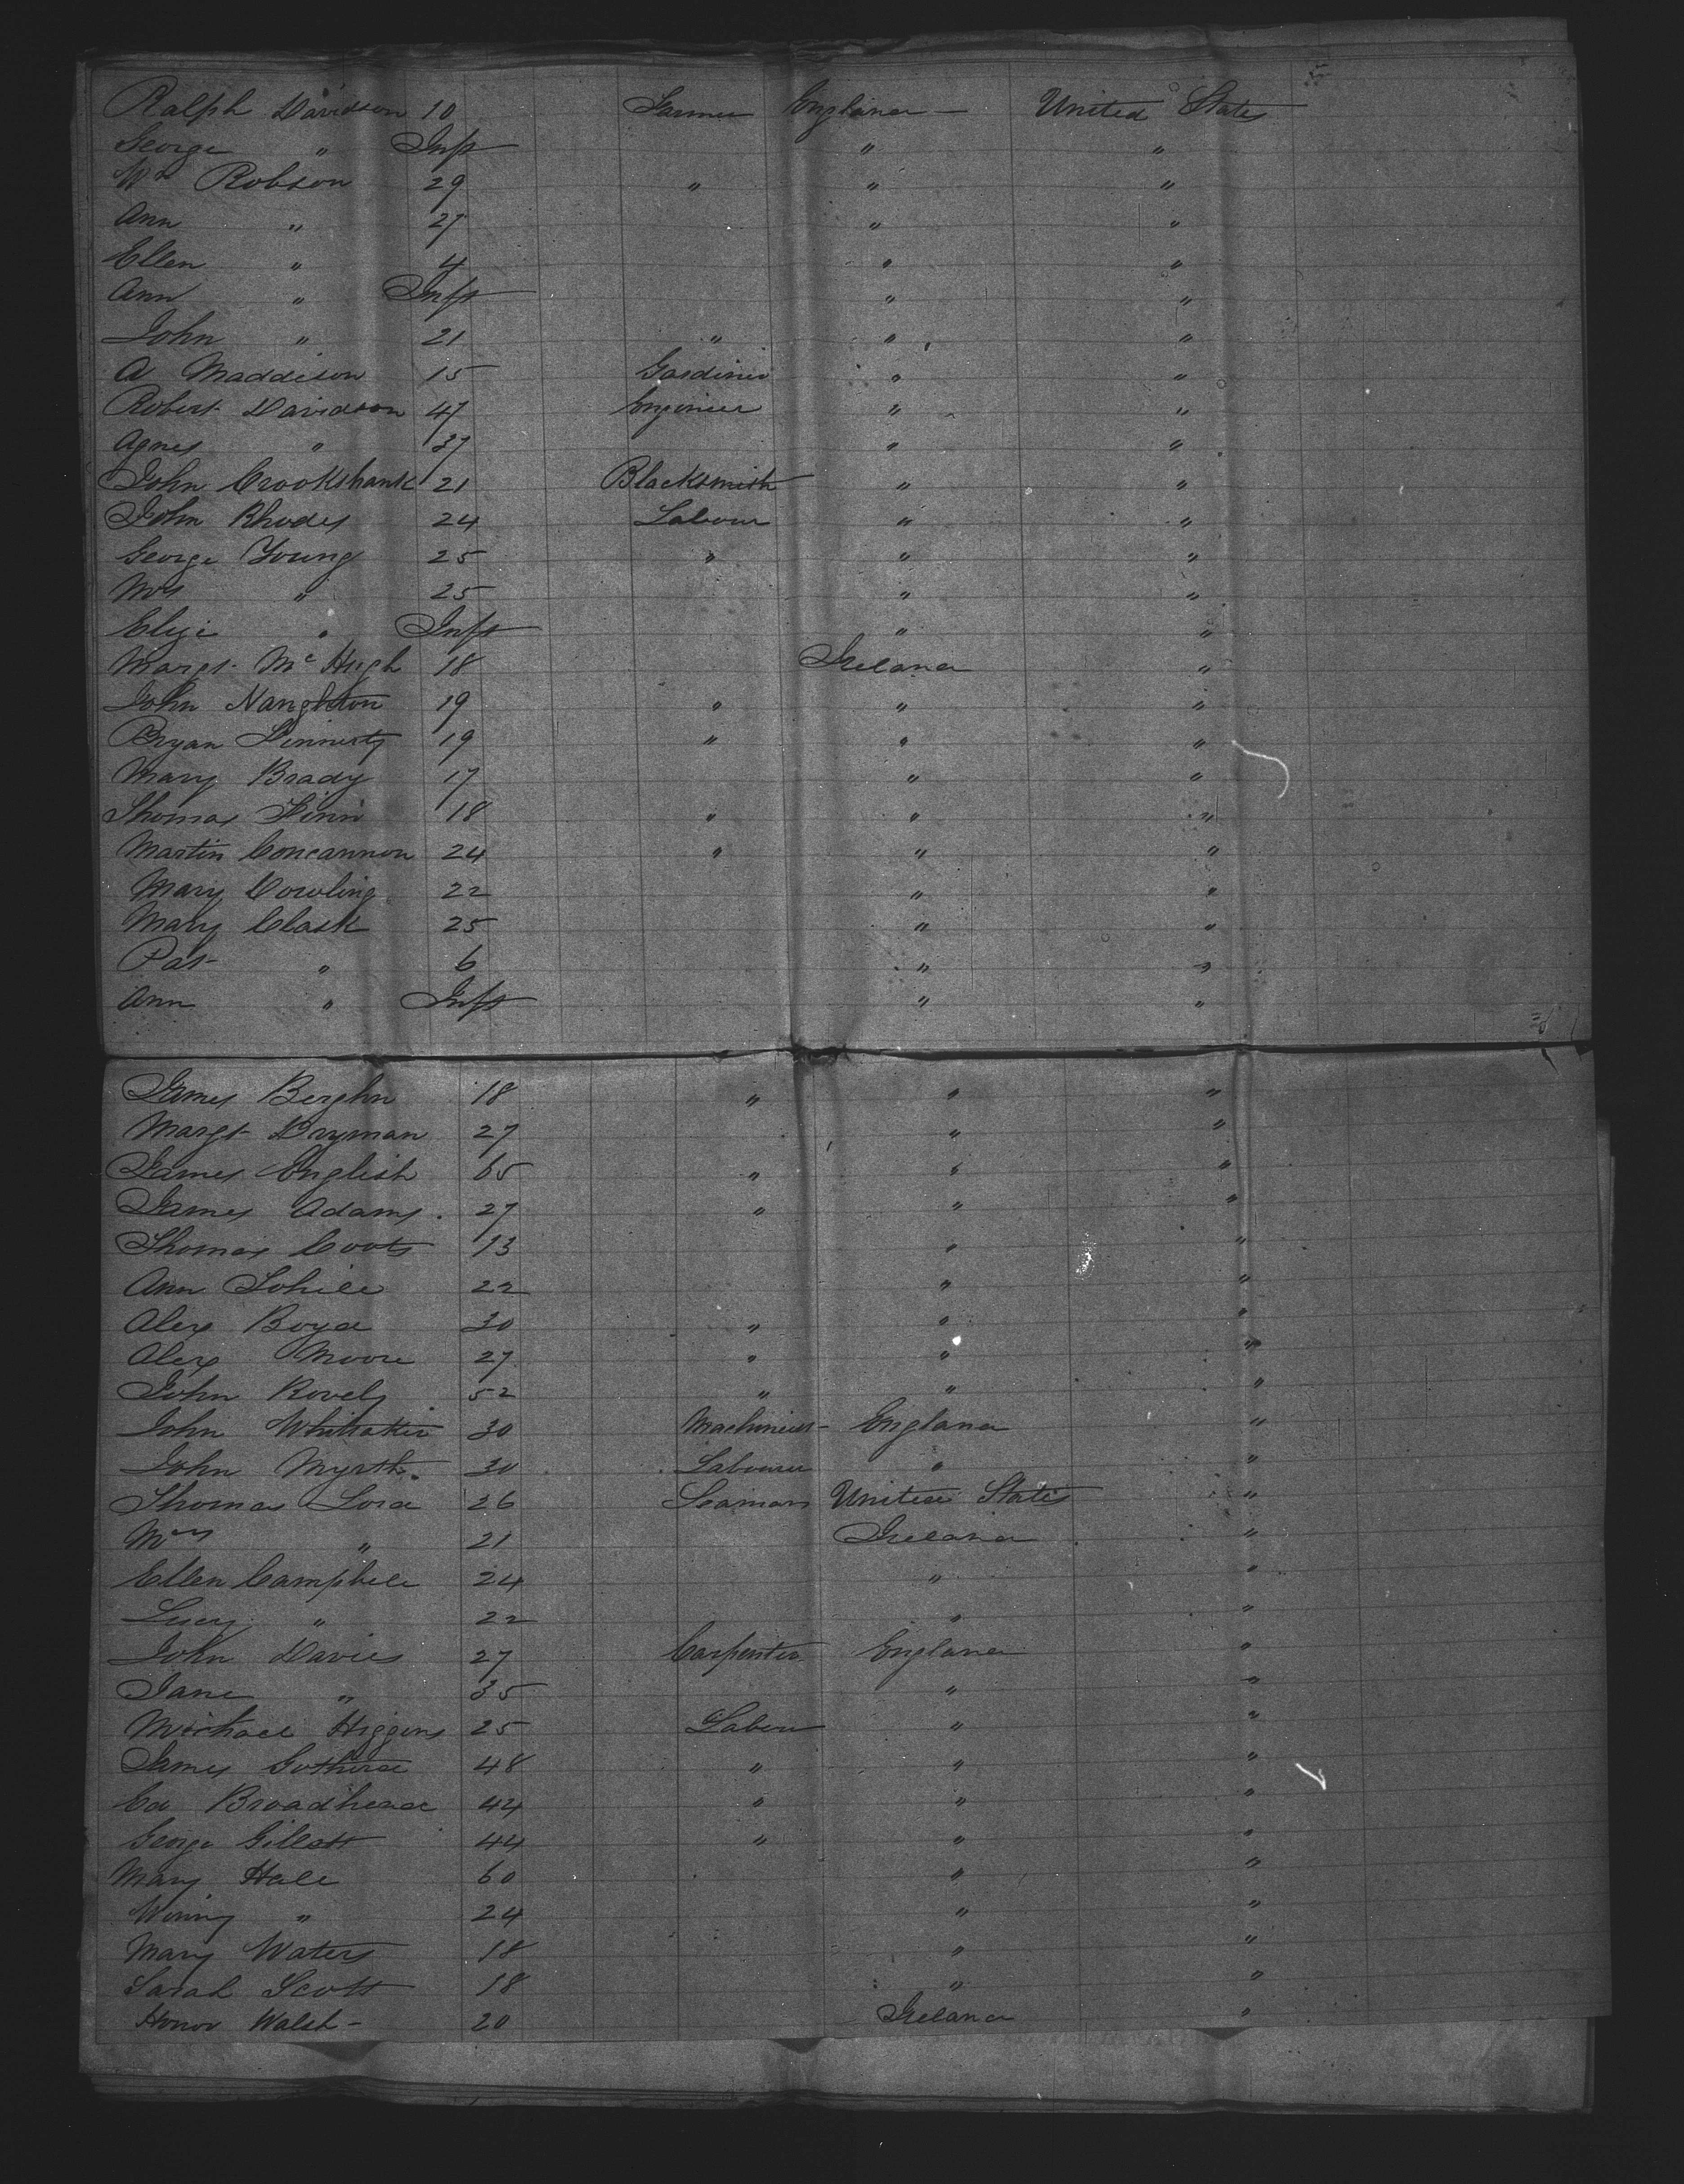 Ralph Davidson 10 Farmer England — United States
George " Inft " "
Wm Robson 29 " " "
Ann " 27 " "
Ellen " 4 " "
Ann " Inft " "
John " 21 " " "
A Maddison 15 Gardiner " "
Robert Davidson 47 Engineer " "
Agnes " 37 " "
John Crookshank 21 Blacksmith " "
John Rhodes 24 Labour " "
George Young 25 " " "
Mrs " 25 " "
" Inft " "
Margt McHugh 18 Ireland "
John Naughton 19 " " "
Bryan Finnerty 19 " " "
Mary Brady 17 " "
Thomas Finn 18 " " "
Martin Concannon 24 " " "
Mary Dowling 22 " "
Mary Clark 25 " "
Pat " 6 " "
Ann " Inft " "
James 18 " " "
Margt Dryman 27 " "
James English 65 " " "
James Adams 27 " " "
Thomas Coots 13 " "
Ann 22 " "
Alex Boyd 30 " " "
Alex Moore 27 " " "
John 52 " " "
John Whittaker 30 Machinist England "
John 30 Labourer " "
Thomas Lord 26 Seaman United States "
Mrs " 21 Ireland "
Ellen Campbell 24 " "
Lucy " 22 " "
John Davies 27 Carpenter England "
Jane " 35 " "
Michael Higgins 25 Labour " "
James 48 " " "
Ed Broadhead 44 " " "
George Gillott 44 " " "
Mary Hall 60 " "
Winny " 24 " "
Mary Waters 18 " "
Sarah Scott 18 " "
Honor Walsh - 20 Ireland "